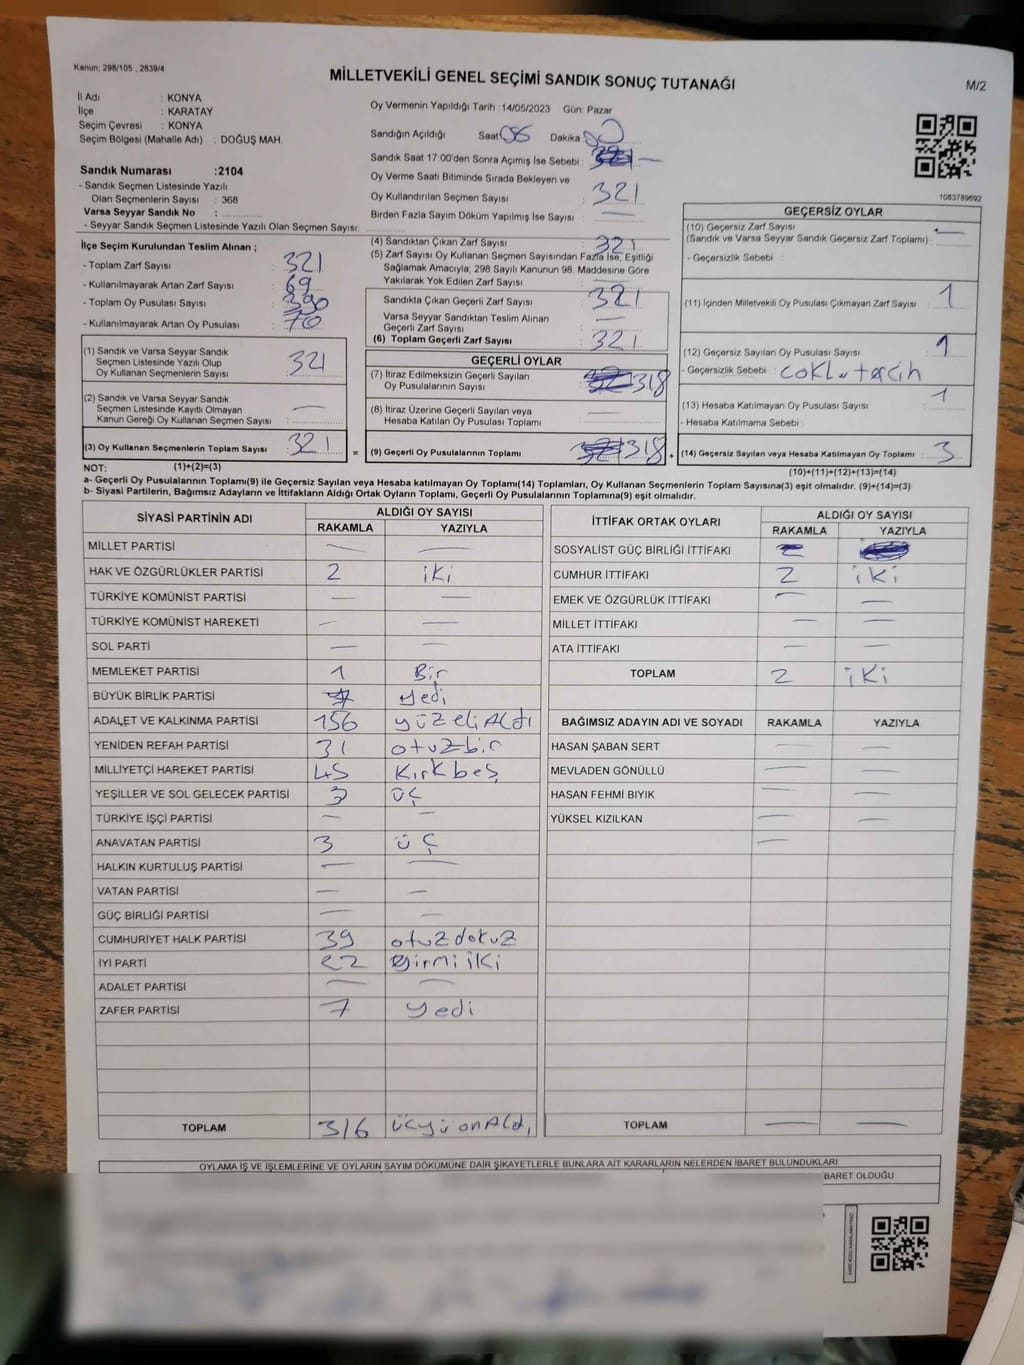 Kanun: 298/105 , 2839/4
MİLLETVEKİLİ GENEL SEÇİMİ SANDIK SONUÇ TUTANAĞI
M/2
İl Adı : KONYA
İlçe : KARATAY
Seçim Çevresi : KONYA
Seçim Bölgesi (Mahalle Adı) : DOĞUŞ MAH.
Oy Vermenin Yapıldığı Tarih : 14/05/2023 Gün: Pazar
Sandığın Açıldığı Saat 08 Dakika
Sandık Saat 17:00'den Sonra Açımış İse Sebebi :
Oy Verme Saati Bitiminde Sırada Bekleyen ve
Oy Kullandırılan Seçmen Sayısı : 321
Birden Fazla Sayım Döküm Yapılmış İse Sayısı : —
1083789692
Sandık Numarası :2104
- Sandık Seçmen Listesinde Yazılı
Olan Seçmenlerin Sayısı : 368
Varsa Seyyar Sandık No :
- Seyyar Sandık Seçmen Listesinde Yazılı Olan Seçmen Sayısı:
İlçe Seçim Kurulundan Teslim Alınan ;
- Toplam Zarf Sayısı : 321
- Kullanılmayarak Artan Zarf Sayısı : 69
- Toplam Oy Pusulası Sayısı : 390
- Kullanılmayarak Artan Oy Pusulası : 70
(1) Sandık ve Varsa Seyyar Sandık
Seçmen Listesinde Yazılı Olup
Oy Kullanan Seçmenlerin Sayısı : 321
(2) Sandık ve Varsa Seyyar Sandık
Seçmen Listesinde Kayıtlı Olmayan
Kanun Gereği Oy Kullanan Seçmen Sayısı : —
(3) Oy Kullanan Seçmenlerin Toplam Sayısı : 321 =
(4) Sandıktan Çıkan Zarf Sayısı : 321
(5) Zarf Sayısı Oy Kullanan Seçmen Sayısından Fazla İse, Eşitliği
Sağlamak Amacıyla; 298 Sayılı Kanunun 98. Maddesine Göre
Yakılarak Yok Edilen Zarf Sayısı :
Sandıkta Çıkan Geçerli Zarf Sayısı : 321
Varsa Seyyar Sandıktan Teslim Alınan
Geçerli Zarf Sayısı : —
(6) Toplam Geçerli Zarf Sayısı : 321
GEÇERLİ OYLAR
(7) İtiraz Edilmeksizin Geçerli Sayılan
Oy Pusulalarının Sayısı : 318
(8) İtiraz Üzerine Geçerli Sayılan veya
Hesaba Katılan Oy Pusulası Toplamı :
(9) Geçerli Oy Pusulalarının Toplamı : 318 +
GEÇERSİZ OYLAR
(10) Geçersiz Zarf Sayısı
(Sandık ve Varsa Seyyar Sandık Geçersiz Zarf Toplamı) : —
- Geçersizlik Sebebi :
(11) İçinden Milletvekili Oy Pusulası Çıkmayan Zarf Sayısı : 1
(12) Geçersiz Sayılan Oy Pusulası Sayısı : 1
- Geçersizlik Sebebi : çoklu tercih
(13) Hesaba Katılmayan Oy Pusulası Sayısı : 1
- Hesaba Katılmama Sebebi :
(14) Geçersiz Sayılan veya Hesaba Katılmayan Oy Toplamı : 3
NOT: (1)+(2)=(3) (10)+(11)+(12)+(13)=(14)
a- Geçerli Oy Pusulalarının Toplamı(9) ile Geçersiz Sayılan veya Hesaba katılmayan Oy Toplamı(14) Toplamları, Oy Kullanan Seçmenlerin Toplam Sayısına(3) eşit olmalıdır. (9)+(14)=(3)
b- Siyasi Partilerin, Bağımsız Adayların ve İttifakların Aldığı Ortak Oyların Toplamı, Geçerli Oy Pusulalarının Toplamına(9) eşit olmalıdır.
SİYASİ PARTİNİN ADI ALDIĞI OY SAYISI
RAKAMLA YAZIYLA
MİLLET PARTİSİ — —
HAK VE ÖZGÜRLÜKLER PARTİSİ 2 iki
TÜRKİYE KOMÜNİST PARTİSİ — —
TÜRKİYE KOMÜNİST HAREKETİ — —
SOL PARTİ — —
MEMLEKET PARTİSİ 1 Bir
BÜYÜK BİRLİK PARTİSİ 7 yedi
ADALET VE KALKINMA PARTİSİ 156 yüz eli Aldı
YENİDEN REFAH PARTİSİ 31 otuzbir
MİLLİYETÇİ HAREKET PARTİSİ 45 Kırkbeş
YEŞİLLER VE SOL GELECEK PARTİSİ 3 üç
TÜRKİYE İŞÇİ PARTİSİ — —
ANAVATAN PARTİSİ 3 üç
HALKIN KURTULUŞ PARTİSİ — —
VATAN PARTİSİ — —
GÜÇ BİRLİĞİ PARTİSİ — —
CUMHURİYET HALK PARTİSİ 39 otuzdokuz
İYİ PARTİ 22 yirmi iki
ADALET PARTİSİ — —
ZAFER PARTİSİ 7 yedi
TOPLAM 316 üçyüonAldı
İTTİFAK ORTAK OYLARI ALDIĞI OY SAYISI
RAKAMLA YAZIYLA
SOSYALİST GÜÇ BİRLİĞİ İTTİFAKI
CUMHUR İTTİFAKI 2 iki
EMEK VE ÖZGÜRLÜK İTTİFAKI — —
MİLLET İTTİFAKI — —
ATA İTTİFAKI — —
TOPLAM 2 iki
BAĞIMSIZ ADAYIN ADI VE SOYADI RAKAMLA YAZIYLA
HASAN ŞABAN SERT — —
MEVLADEN GÖNÜLLÜ — —
HASAN FEHMİ BIYIK — —
YÜKSEL KIZILKAN — —
—
TOPLAM — —
OYLAMA İŞ VE İŞLEMLERİNE VE OYLARIN SAYIM DÖKÜMÜNE DAİR ŞİKAYETLERLE BUNLARA AİT KARARLARIN NELERDEN İBARET BULUNDUKLARI
BARET OLDUĞU